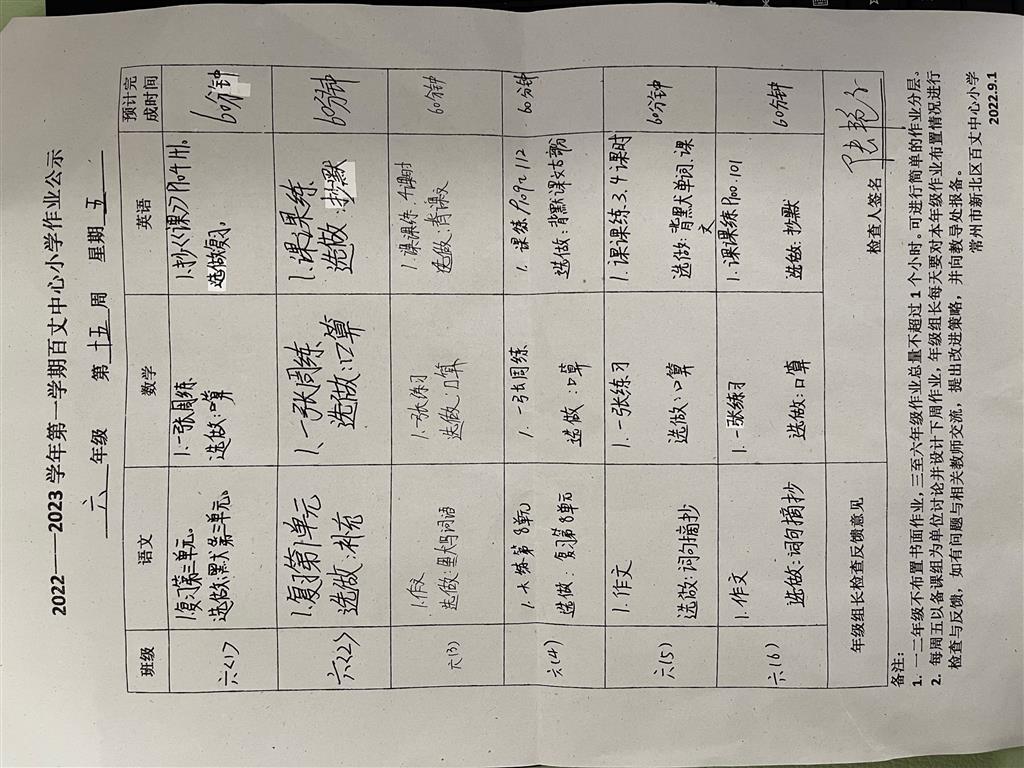 2022——2023 学年第一学期百丈中心小学作业公示
六 年级 第 十五 周 星期 五
班级 语文 数学 英语 预计完成时间
六(1) 1.复习第三单元。 1.一张周练 1.抄《课课》P110-111。 60分钟
选做:默第三单元。 选做:口算 选做:复习。
六(2) 1.复习第1单元 1.一张周练 1.课课练 60分钟
选做:补充 选做:口算 选做:抄默
六(3) 1.作文 1.一张练习 1.课课练.4课时 60分钟
选做:默写词语 选做:口算 选做:背课文
六(4) 1.大练第8单元 1.一张周练 1.课练P109-112 60分钟
选做:复习第8单元 选做:口算 选做:背默课文
六(5) 1.作文 1.一张练习 1.课课练.3.4课时 60分钟
选做:词句摘抄 选做:口算 选做:背默单词.课文
六(6) 1.作文 1.一张练习 1.课课练P100.101 60分钟
选做:词句摘抄 选做:口算 选做:抄默
年级组长检查反馈意见 检查人签名
备注:
1. 一二年级不布置书面作业,三至六年级作业总量不超过 1 个小时。可进行简单的作业分层。
2. 每周五以备课组为单位讨论并设计下周作业,年级组长每天要对本年级作业布置情况进行
检查与反馈,如有问题与相关教师交流,提出改进策略,并向教导处报备。
常州市新北区百丈中心小学
2022.9.1